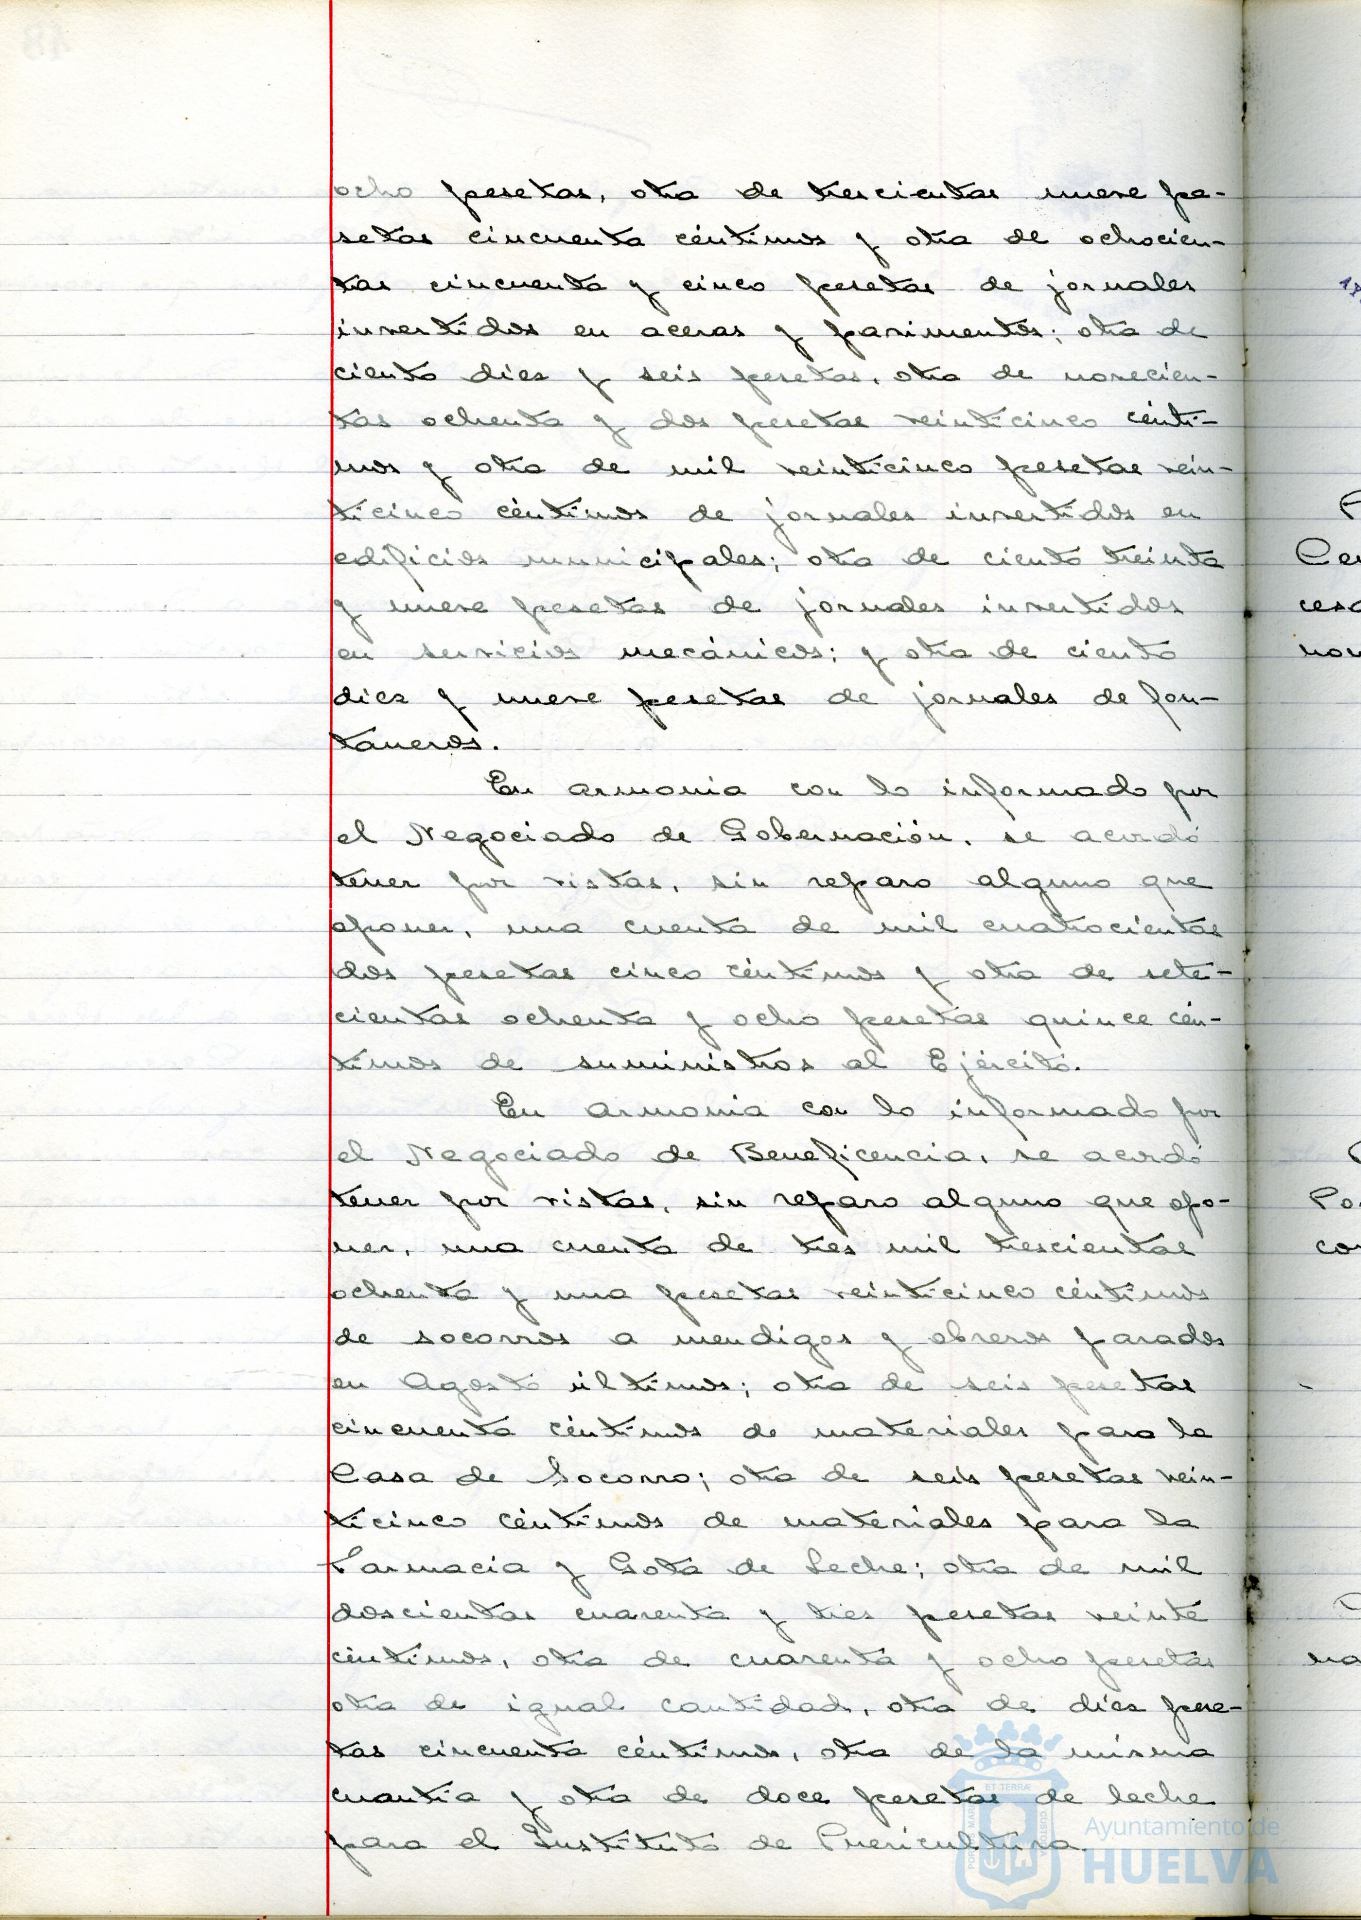 ocho pesetas, otra de trescientas nueve pe-
setas cincuenta céntimos y otra de ochocien-
tas cincuenta y cinco pesetas de jornales
invertidos en aceras y pavimentos; otra de
ciento diez y seis pesetas, otra de novecien-
tas ochenta y dos pesetas veinticinco cénti-
mos y otra de mil veinticinco pesetas vein-
ticinco céntimos de jornales invertidos en
edificios municipales; otra de ciento treinta
y nueve pesetas de jornales invertidos
en servicios mecánicos; y otra de ciento
diez y nueve pesetas de jornales de fon-
taneros.
En armonia con lo informado por
el Negociado de Gobernación, se acordó
tener por vistas, sin reparo alguno que
oponer, una cuenta de mil cuatrocientas
dos pesetas cinco céntimos y otra de sete-
cientas ochenta y ocho pesetas quince cén-
timos de suministros al Ejército.
En armonia con lo informado por
el Negociado de Beneficencia, se acordó
tener por vistas, sin reparo alguno que opo-
ner, una cuenta de tres mil trescientas
ochenta y una pesetas veinticinco céntimos
de socorros a mendigos y obreros parados
en Agosto últimos; otra de seis pesetas
cincuenta céntimos de materiales para la
Casa de Socorro; otra de seis pesetas vein-
ticinco céntimos de materiales para la
Farmacia y Gota de Leche; otra de mil
doscientas cuarenta y tres pesetas veinte
céntimos, otra de cuarenta y ocho pesetas
otra de igual cantidad, otra de diez pese-
tas cincuenta céntimos, otra de la misma
cuantia y otra de doce pesetas de leche
para el Instituto de Puericultura.
Ayuntamiento de
HUELVA